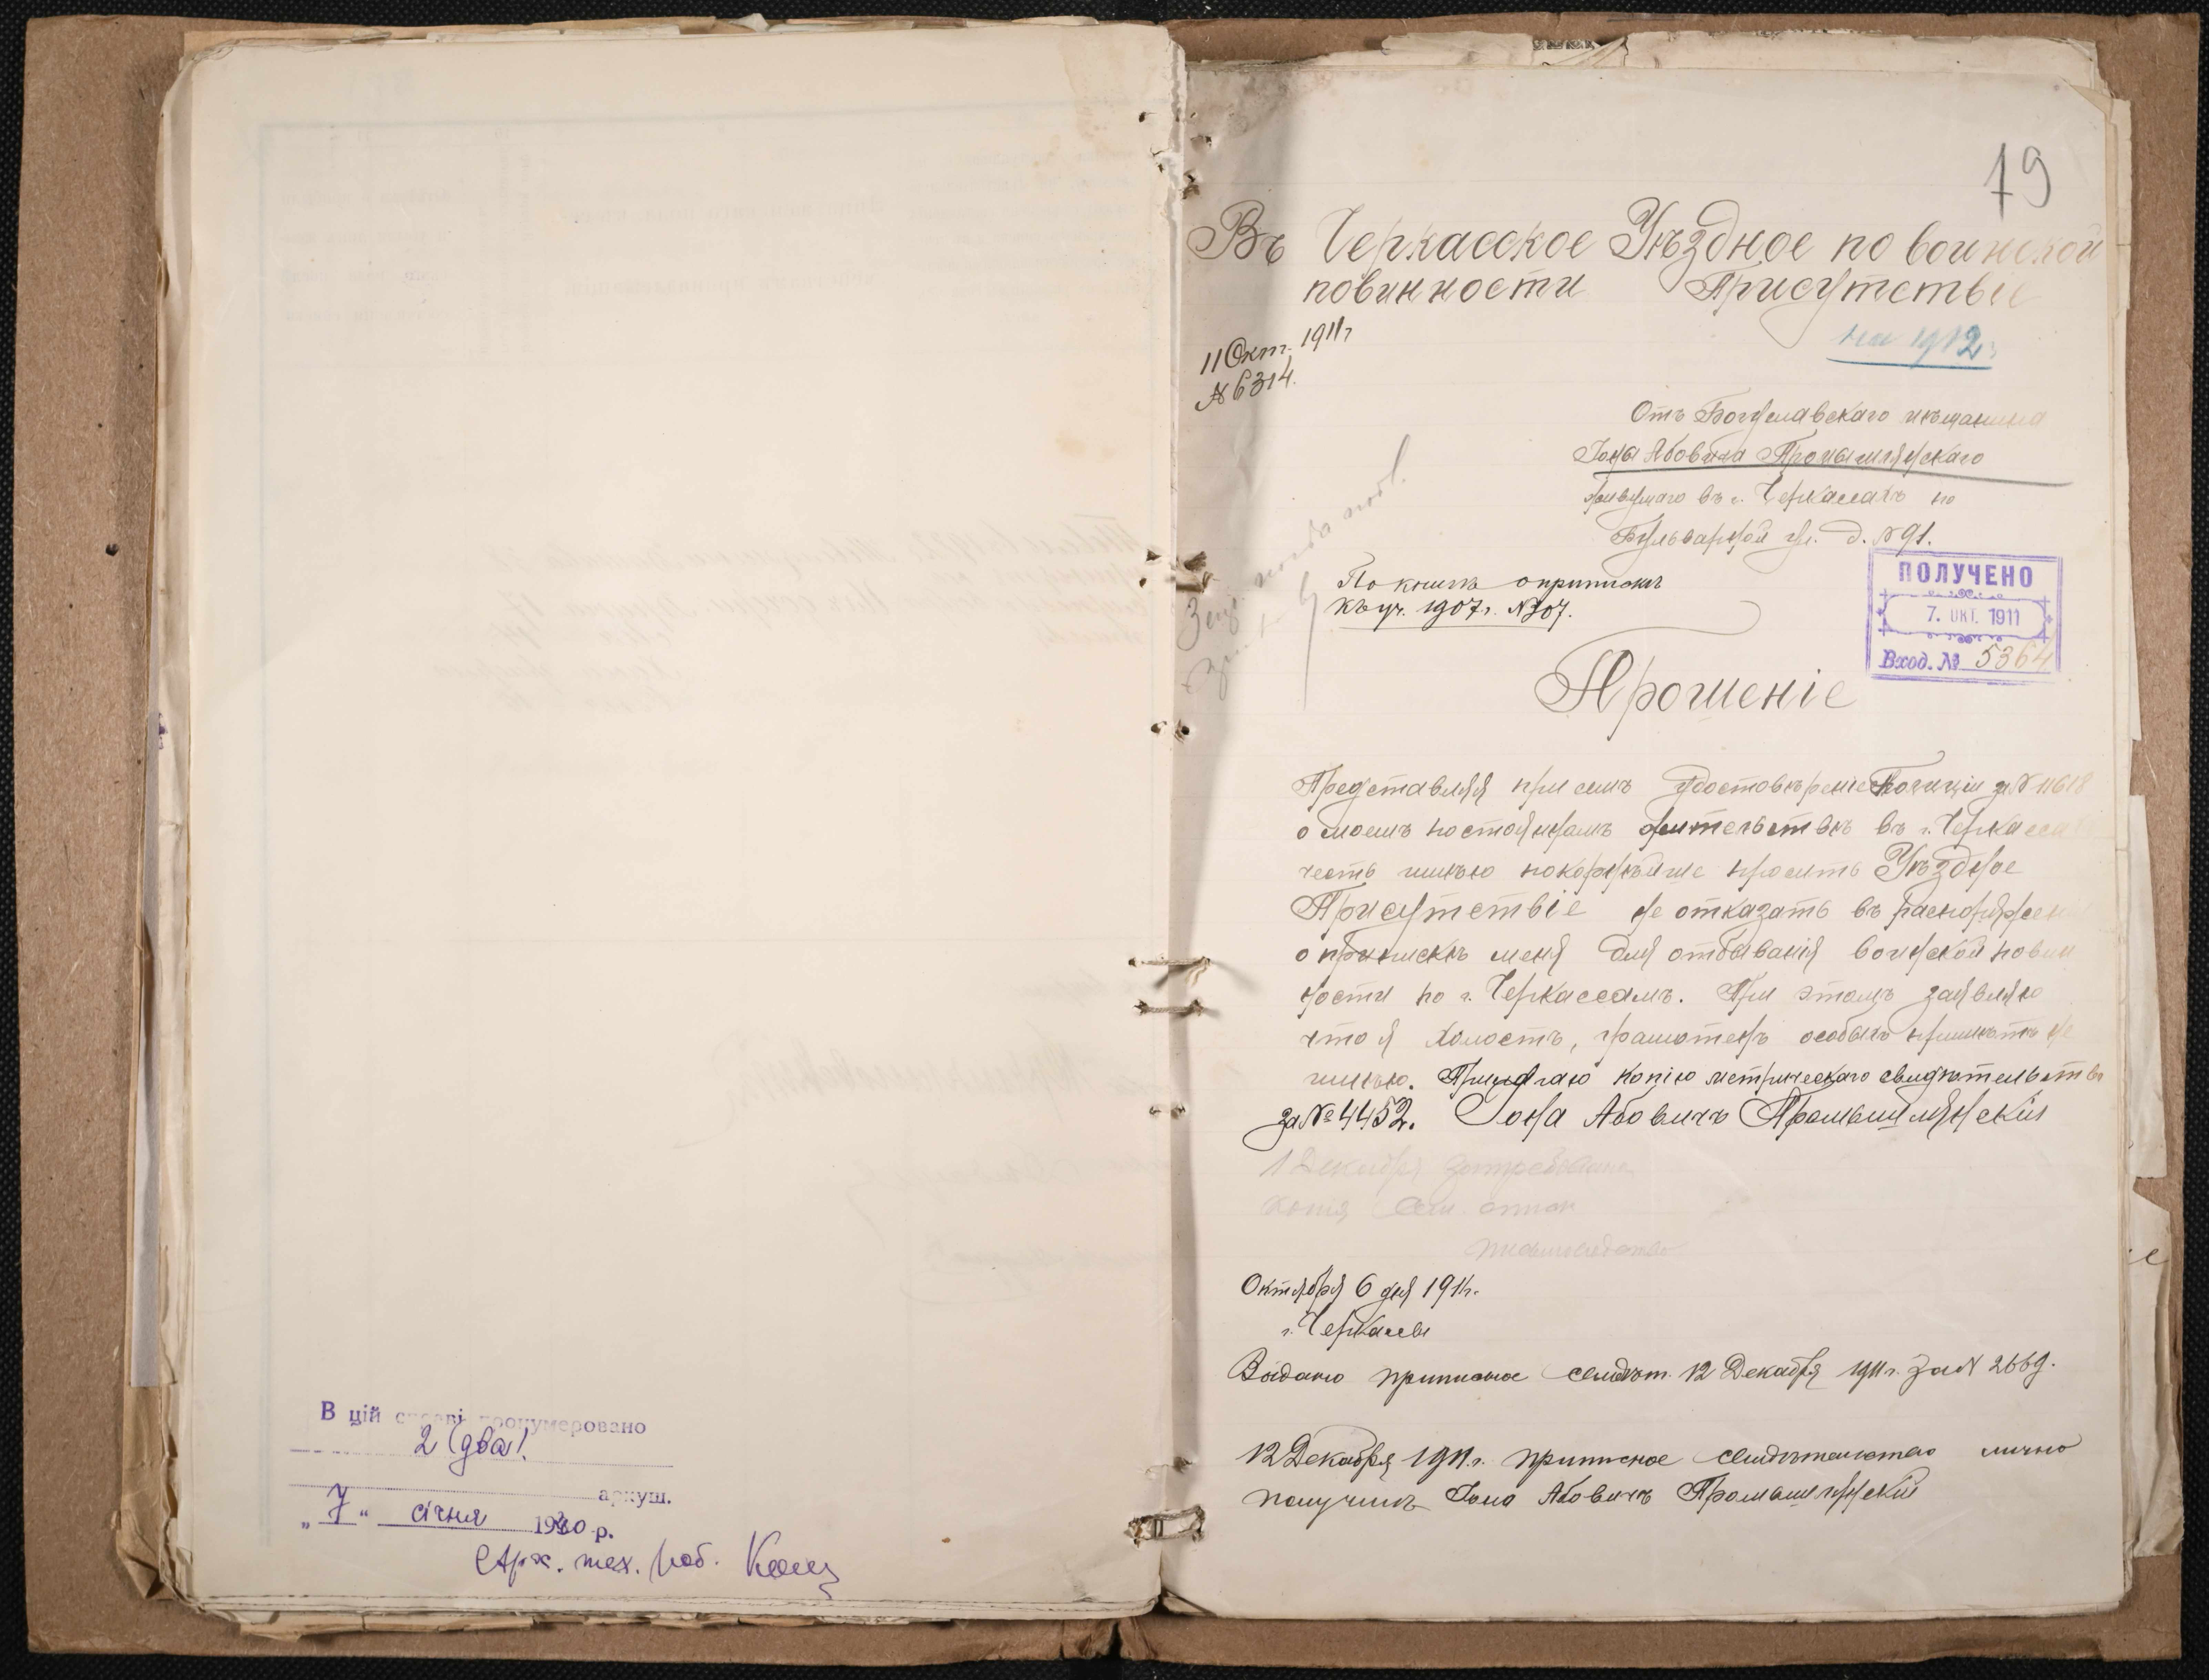 В цій справі пронумеровано
2 (два)
аркуш.
„ 7 “ січня 1930 р.
Арх. тех. роб.
79
Въ Черкасское Уѣздное по воинской
повинности Присутствіе
на 1912 г.
11 Окт. 1911 г
№ 6314.
Отъ Богуславскаго мѣщанина
Іоны Абовича Промышлянскаго
живущаго въ г. Черкассахъ по
Бульварной ул. д. № 91.
По книгѣ о припискѣ
къ уч. 1907 г. № 307.
ПОЛУЧЕНО
7. ОКТ. 1911
Вход. № 5364
Прошеніе
Представляя при семъ удостовѣреніе Полиціи за № 11618
о моемъ постоянномъ жительствѣ въ г. Черкасса
честь имѣю покорнѣйше просить Уѣздное
Присутствіе не отказать въ распоряжен
о припискѣ меня для отбыванія воинской повин
ности по г. Черкассамъ. При этомъ заявляю
что я холостъ, грамотенъ особыхъ примѣтъ не
имѣю. Прилагаю копію метрическаго свидѣтельства
за № 4452. Іона Абовичъ Промышлянскій
1 Декабря затребована
Октября 6 дня 1911 г.
г. Черкассы
Выдано приписное свидѣт. 12 Декабря 1911 г. за № 2669.
12 Декабря 1911 г. приписное свидѣтельство лично
получилъ Іона Абовичъ Промышлянскій